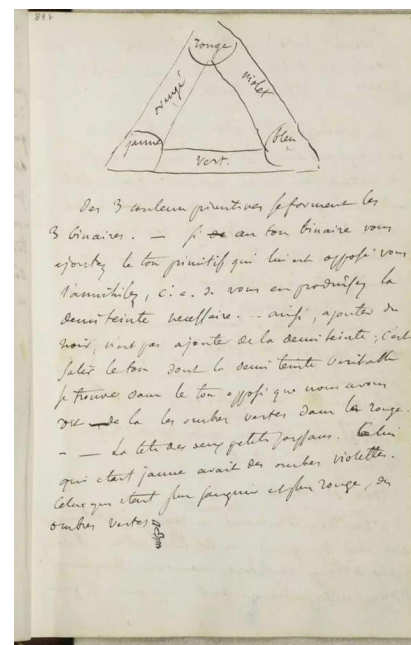 rouge
orangé
violet
jaune
bleu
vert.
Des 3 couleurs primitives se forment les
3 binaires. — si au ton binaire vous
ajoutez le ton primitif qui lui est opposé vous
l'annihilez, c. a. d. vous en produisez la
demi teinte necessaire. .. ainsi, ajouter du
noir, n'est pas ajouter de la demi teinte; c'est
salir le ton dont la demi teinte veritable
se trouve dans le ton opposé que nous avons
dit — de la les ombres vertes dans le rouge.
- — La tete des deux petits paysans. Celui
qui etait jaune avait des ombres violettes.
Celui qui etait plus sanguin et plus rouge, des
ombres vertes